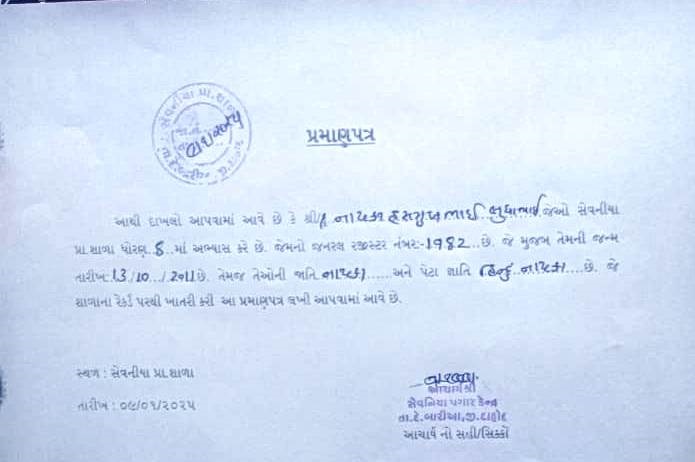 સેવનીયા પ્રા. શાળા
પ્રમાણપત્ર
આથી દાખલો આપવામાં આવે છે કે શ્રી/કુ નાયકા હસમુખભાઈ બુધાભાઈ જેઓ સેવનીયા
પ્રા.શાળા ધોરણ 8..માં અભ્યાસ કરે છે. જેમનો જનરલ રજીસ્ટર નંબર:-1982..છે. જે મુજબ તેમની જન્મ
તારીખ:13/10.../2011છે. તેમજ તેઓની જાતિ નાયકા......અને પેટા જ્ઞાતિ હિન્દુ નાયકા....છે. જે
શાળાના રેકર્ડ પરથી ખાતરી કરી આ પ્રમાણપત્ર લખી આપવામાં આવે છે.
સ્થળ : સેવનીયા પ્રા.શાળા
તારીખ : 09/01/2025
આચાર્યશ્રી
સેવનિયા પગાર કેન્દ્ર
તા.દે.બારીઆ,જી.દાહોદ
આચાર્ય નો સહી/સિક્કો